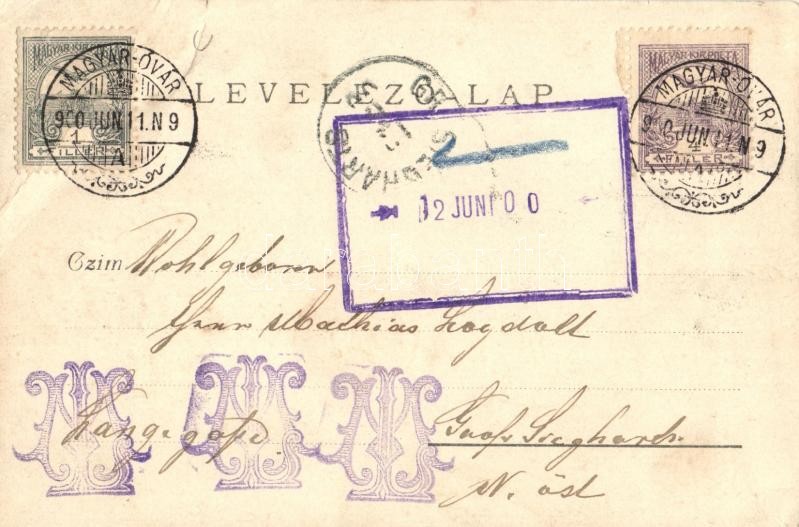 MAGYAR KIR. POSTA
MAGYAR-ÓVÁR
900 JUN 11.N 9
A
1
FILLÉR
LEVELEZŐ-LAP
MAGYAR KIR. POSTA
MAGYAR-ÓVÁR
900 JUN 11 N 9
4
FILLÉR
12 JUNI 00
Czim Wohlgeboren
Herrn Mathias Logdolt
Langegasse
Groß Sieghards
N. öst